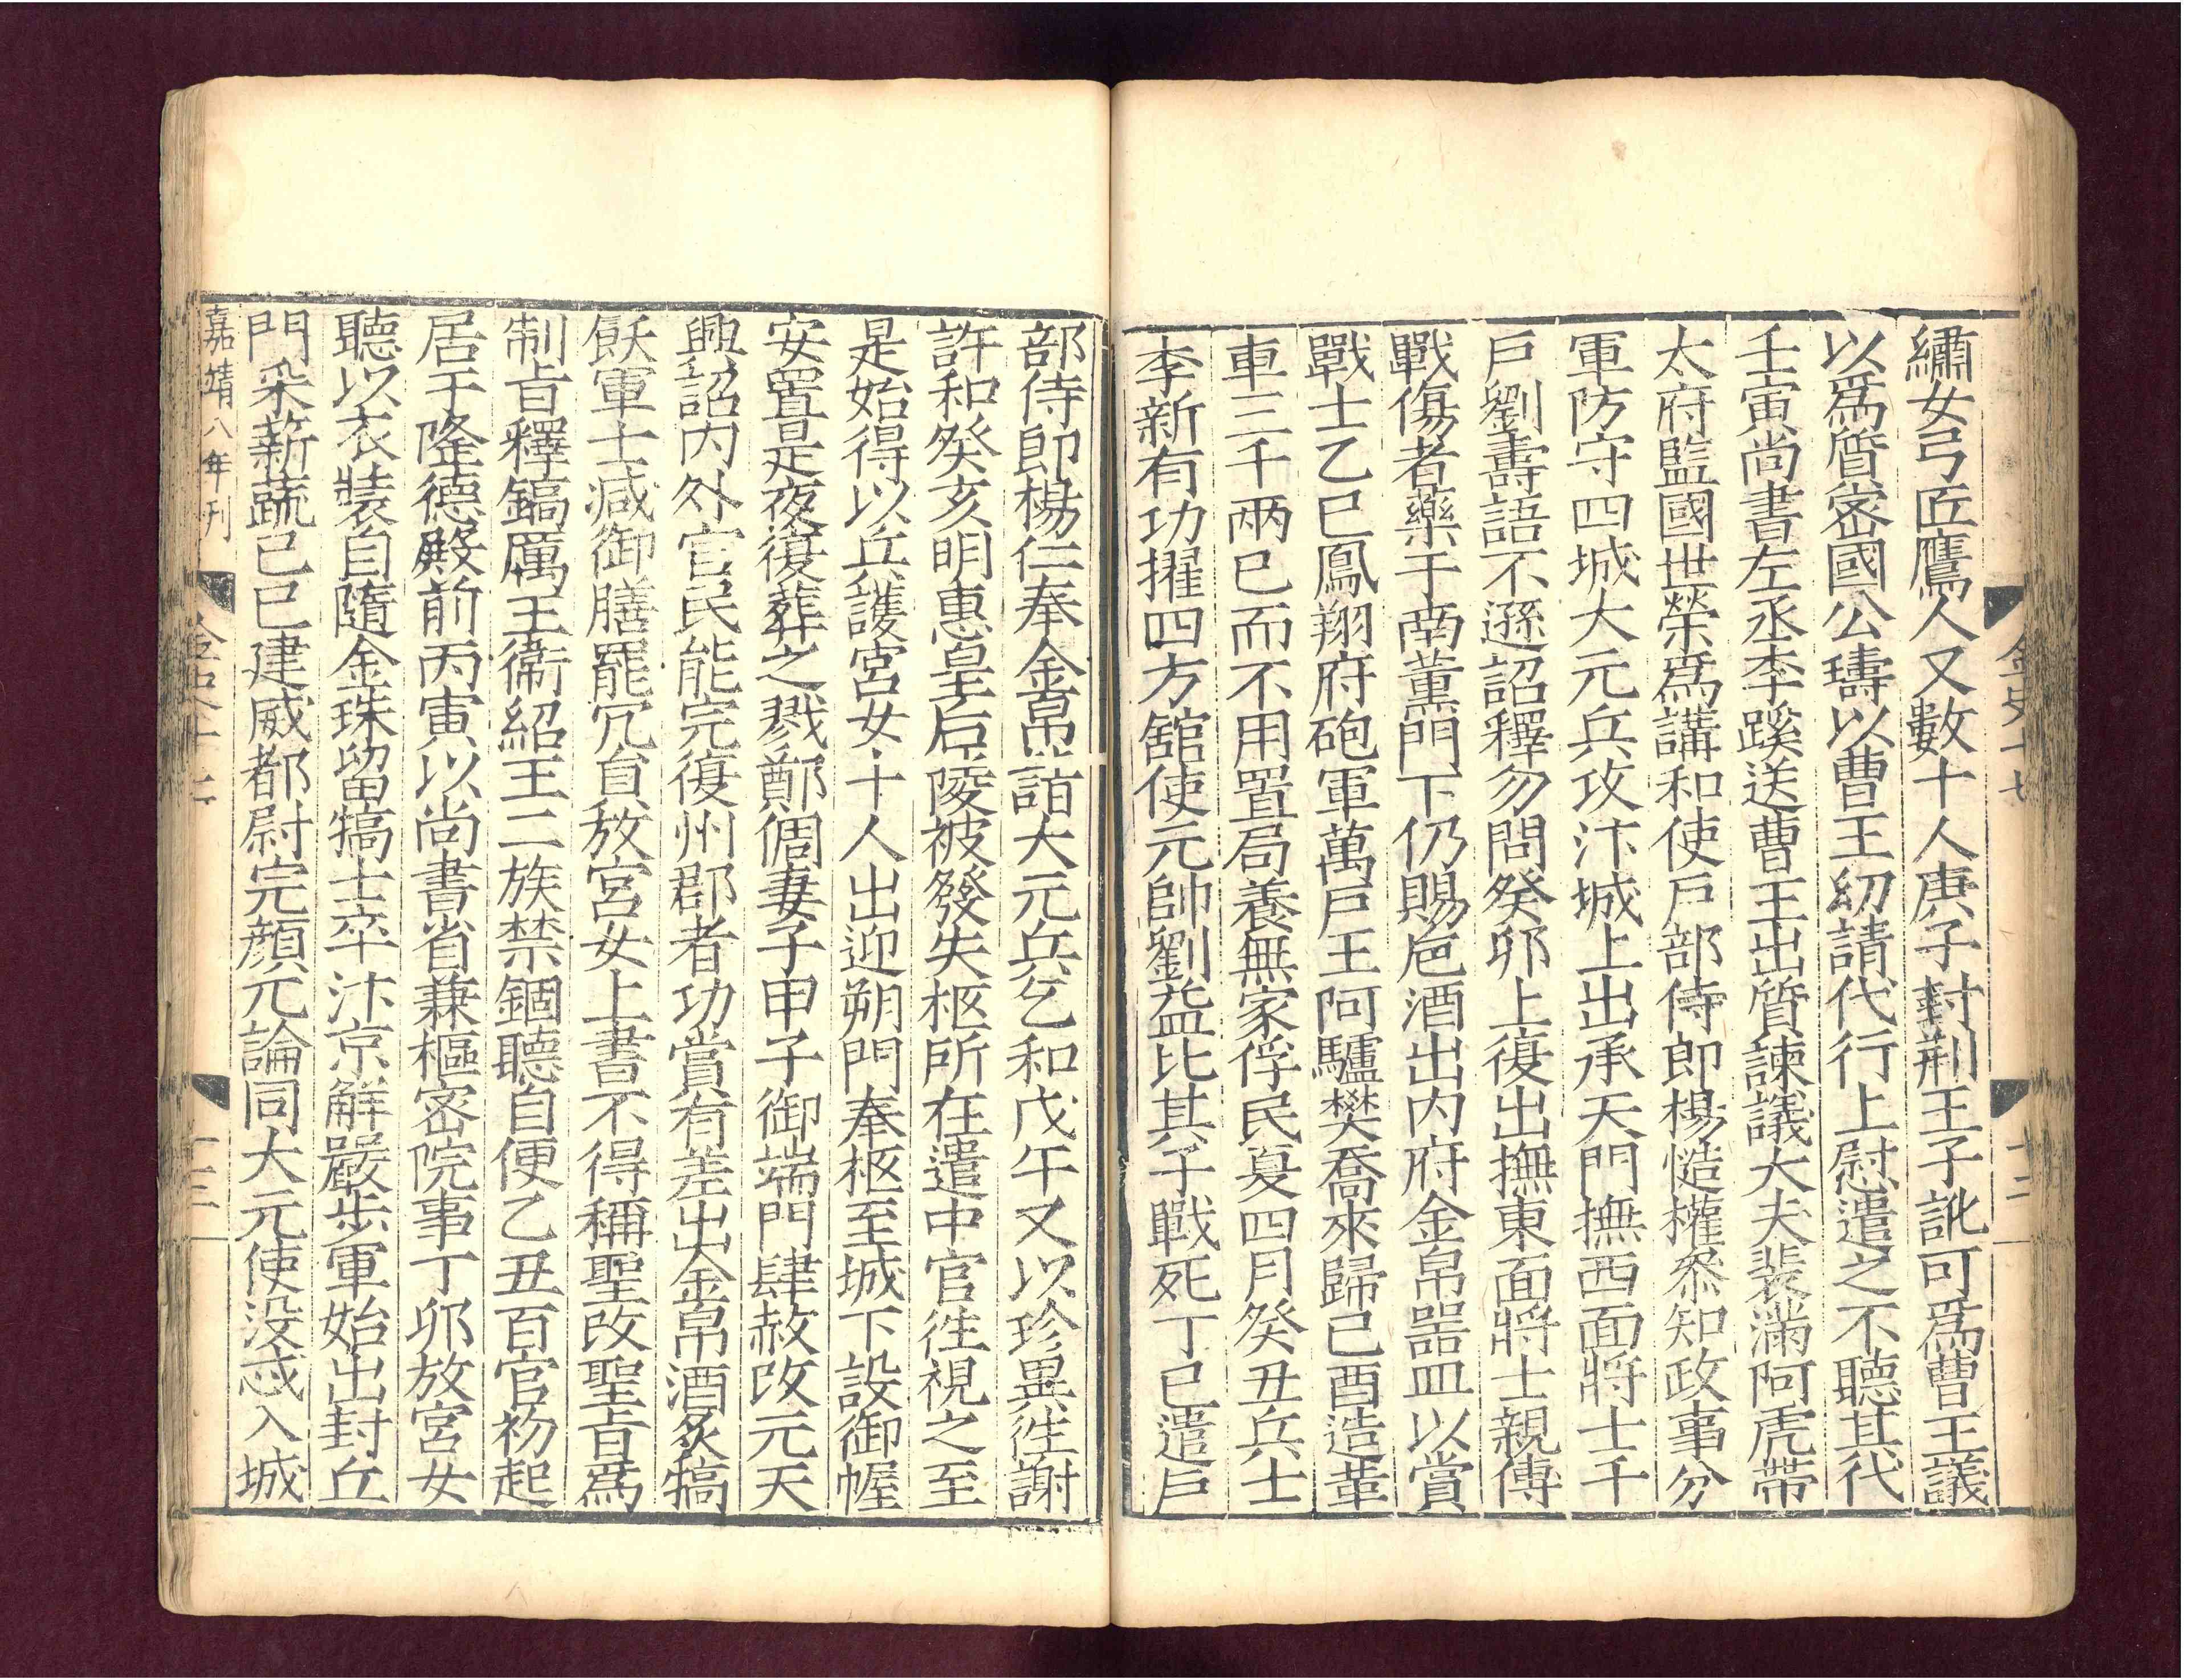 金史十七
十二
繡女弓匠鷹人又數十人庚子封荆王子訛可爲曹王議
以爲質密國公璹以曹王幼請代行上慰遣之不聽其代
壬寅尚書左丞李蹊送曹王出質諫議大夫裴滿阿虎帶
太府監國世榮爲講和使戶部侍郎楊慥權叅知政事分
軍防守四城大元兵攻汴城上出承天門撫西面將士千
戶劉壽語不遜詔釋勿問癸卯上復出撫東面將士親傳
戰傷者藥于南薰門下仍賜巵酒出内府金帛噐皿以賞
戰士乙巳鳳翔府砲軍萬戶王阿驢樊喬來歸己酉造革
車三千兩已而不用置局養無家俘民夏四月癸丑兵士
李新有功擢四方舘使元帥劉益比其子戰死丁巳遣戶
部侍郎楊仁奉金帛詣大元兵乞和戊午又以珍異徃謝
許和癸亥明惠皇后陵被發失柩所在遣中官徃視之至
是始得以兵護宮女十人出迎朔門奉柩至城下設御幄
安置是夜復葬之戮鄭倜妻子甲子御端門肆赦改元天
興詔内外官民能完復州郡者功賞有差出金帛酒炙犒
飫軍士减御膳罷冗食放宮女上書不得稱聖改聖旨爲
制旨釋鎬厲王衞紹王二族禁錮聽自便乙丑百官初起
居于隆德殿前丙寅以尚書省兼樞密院事丁卯放宮女
聽以衣裝自隨金珠留犒士卒汴京解嚴步軍始出封丘
門采薪蔬己巳建威都尉完顔兀論同大元使没忒入城
嘉靖八年刊
十三